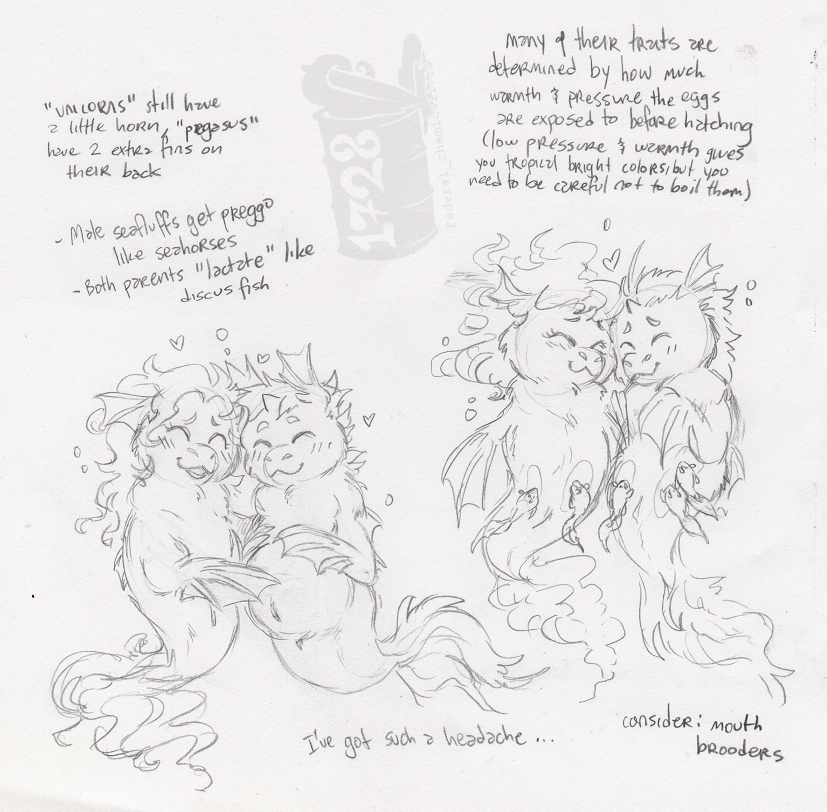 "UNICORNS" still have
a little horn, "pegasus"
have 2 extra fins on
their back
- Male seafluffs get preggo
like seahorses
- Both parents "lactate" like
discus fish
1728
Federal_chemicals
many of their traits are
determined by how much
warmth & pressure the eggs
are exposed to before hatching
(low pressure & warmth gives
you tropical bright colors, but you
need to be careful not to boil them)
I've got such a headache ...
consider: mouth
brooders